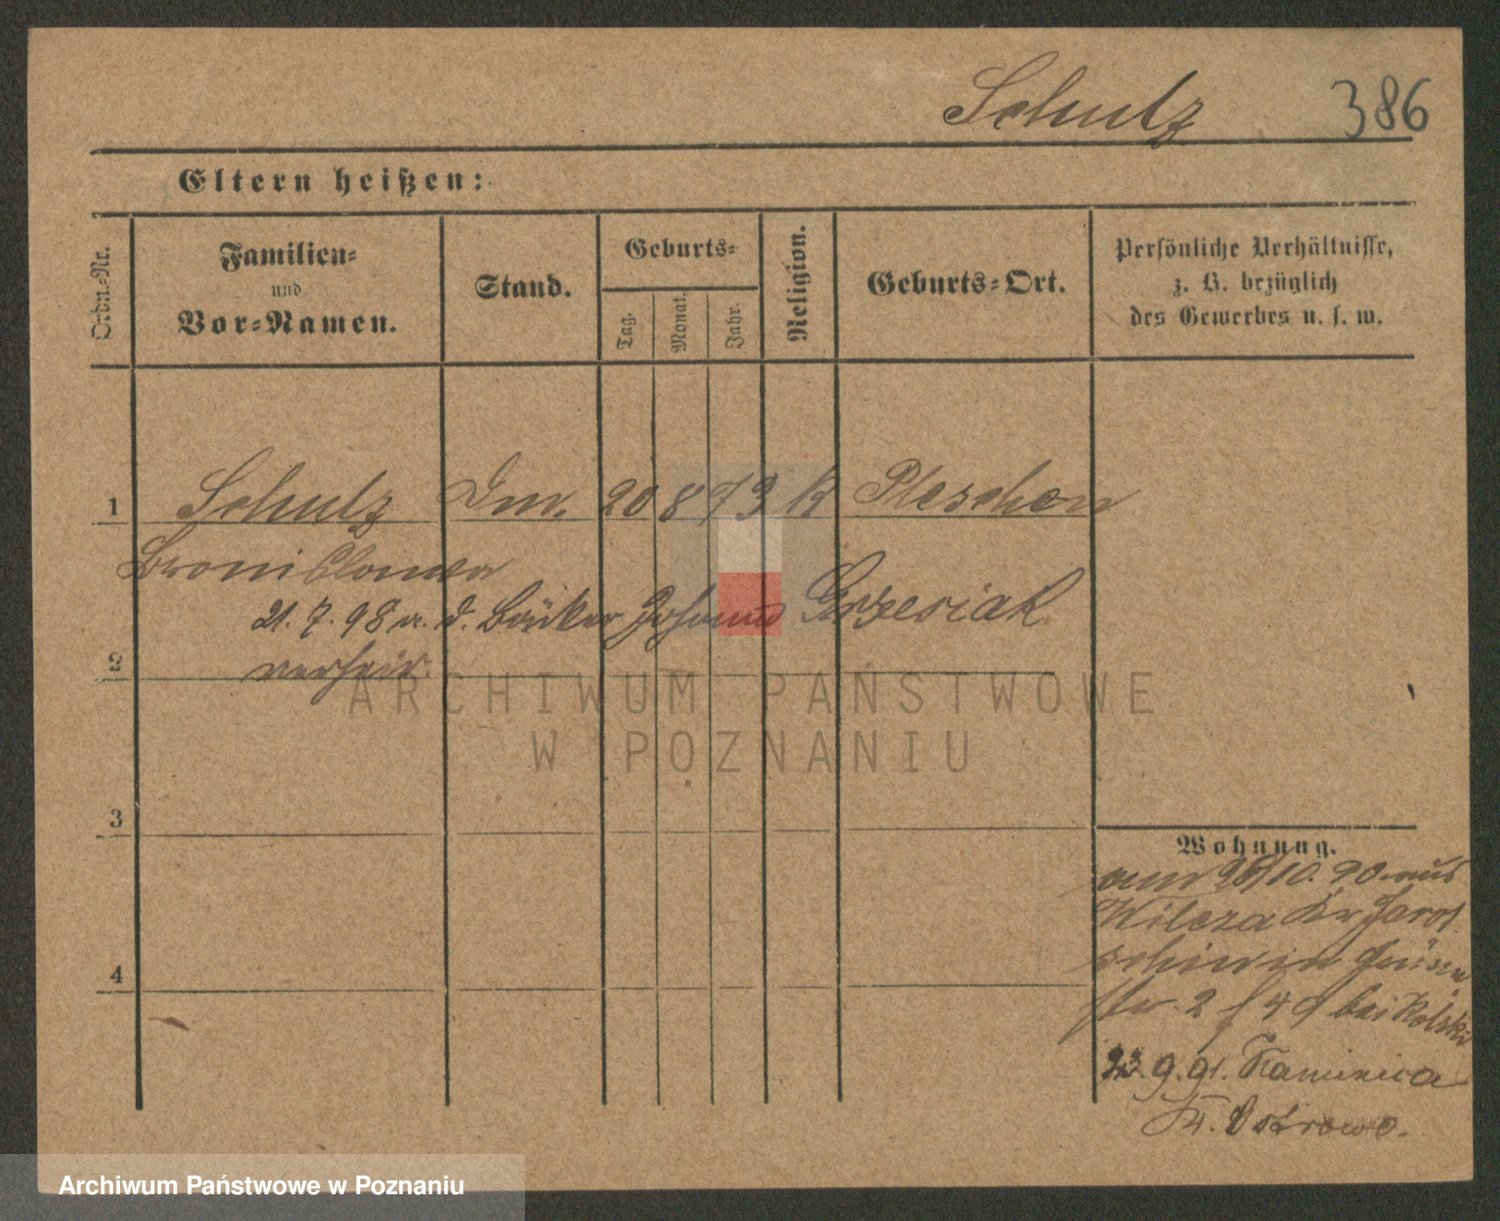 Schulz 386
Eltern heißen:
Ordn.-Nr.
Familien-
und
Vor-Namen.
Stand.
Geburts-
Tag.
Monat.
Jahr.
Religion.
Geburts-Ort.
Persönliche Verhältnisse,
z. B. bezüglich
des Gewerbes u. s. w.
1 Schulz Dm. 20 8 73 K Pleschen
Bronislawa
21. 7. 98 m. d. Bäcker Johann Grzesiak
2 verheir.
ARCHIWUM PAŃSTWOWE
W POZNANIU
3
Wohnung.
am 26/10. 90 aus
Wilcza Kr Jarot
schin in
str. 2 bei Rolski
4
23. 9. 91. Kamienica
Kr. Ostrowo.
Archiwum Państwowe w Poznaniu